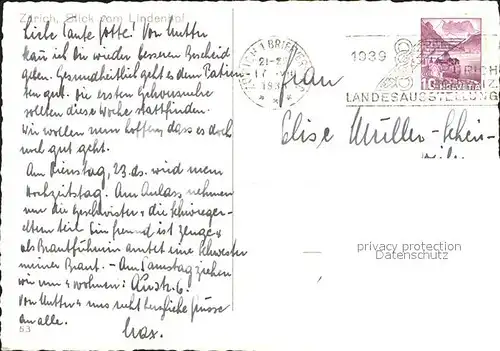 Zürich, Blick vom Lindenhof
Liebe Tante Gotte! Von Mutter
kann ich Dir wieder besseren Bescheid
geben. Gesundheitlich geht es dem Patien-
ten gut. Die ersten Gehversuche
sollen diese Woche stattfinden.
Wir wollen nun hoffen, dass es doch
noch gut geht.
Am Dienstag, 23. ds. wird mein
Hochzeitstag. Am Anlass nehmen
nur die Geschwister & die Schwieger-
eltern teil. Ein Freund ist Zeuge &
als Brautführerin amtet eine Schwester
meiner Braut. - Am Samstag ziehen
wir um & wohnen:
Von Mutter & uns recht herzliche Grüsse
an alle.
Max.
53
BRIEFVERS
21-2
17
193
1939
ZÜRICH
LANDESAUSSTELLUNG
10
HELVETIA
Frau
Elise Müller-
privacy protection
Datenschutz